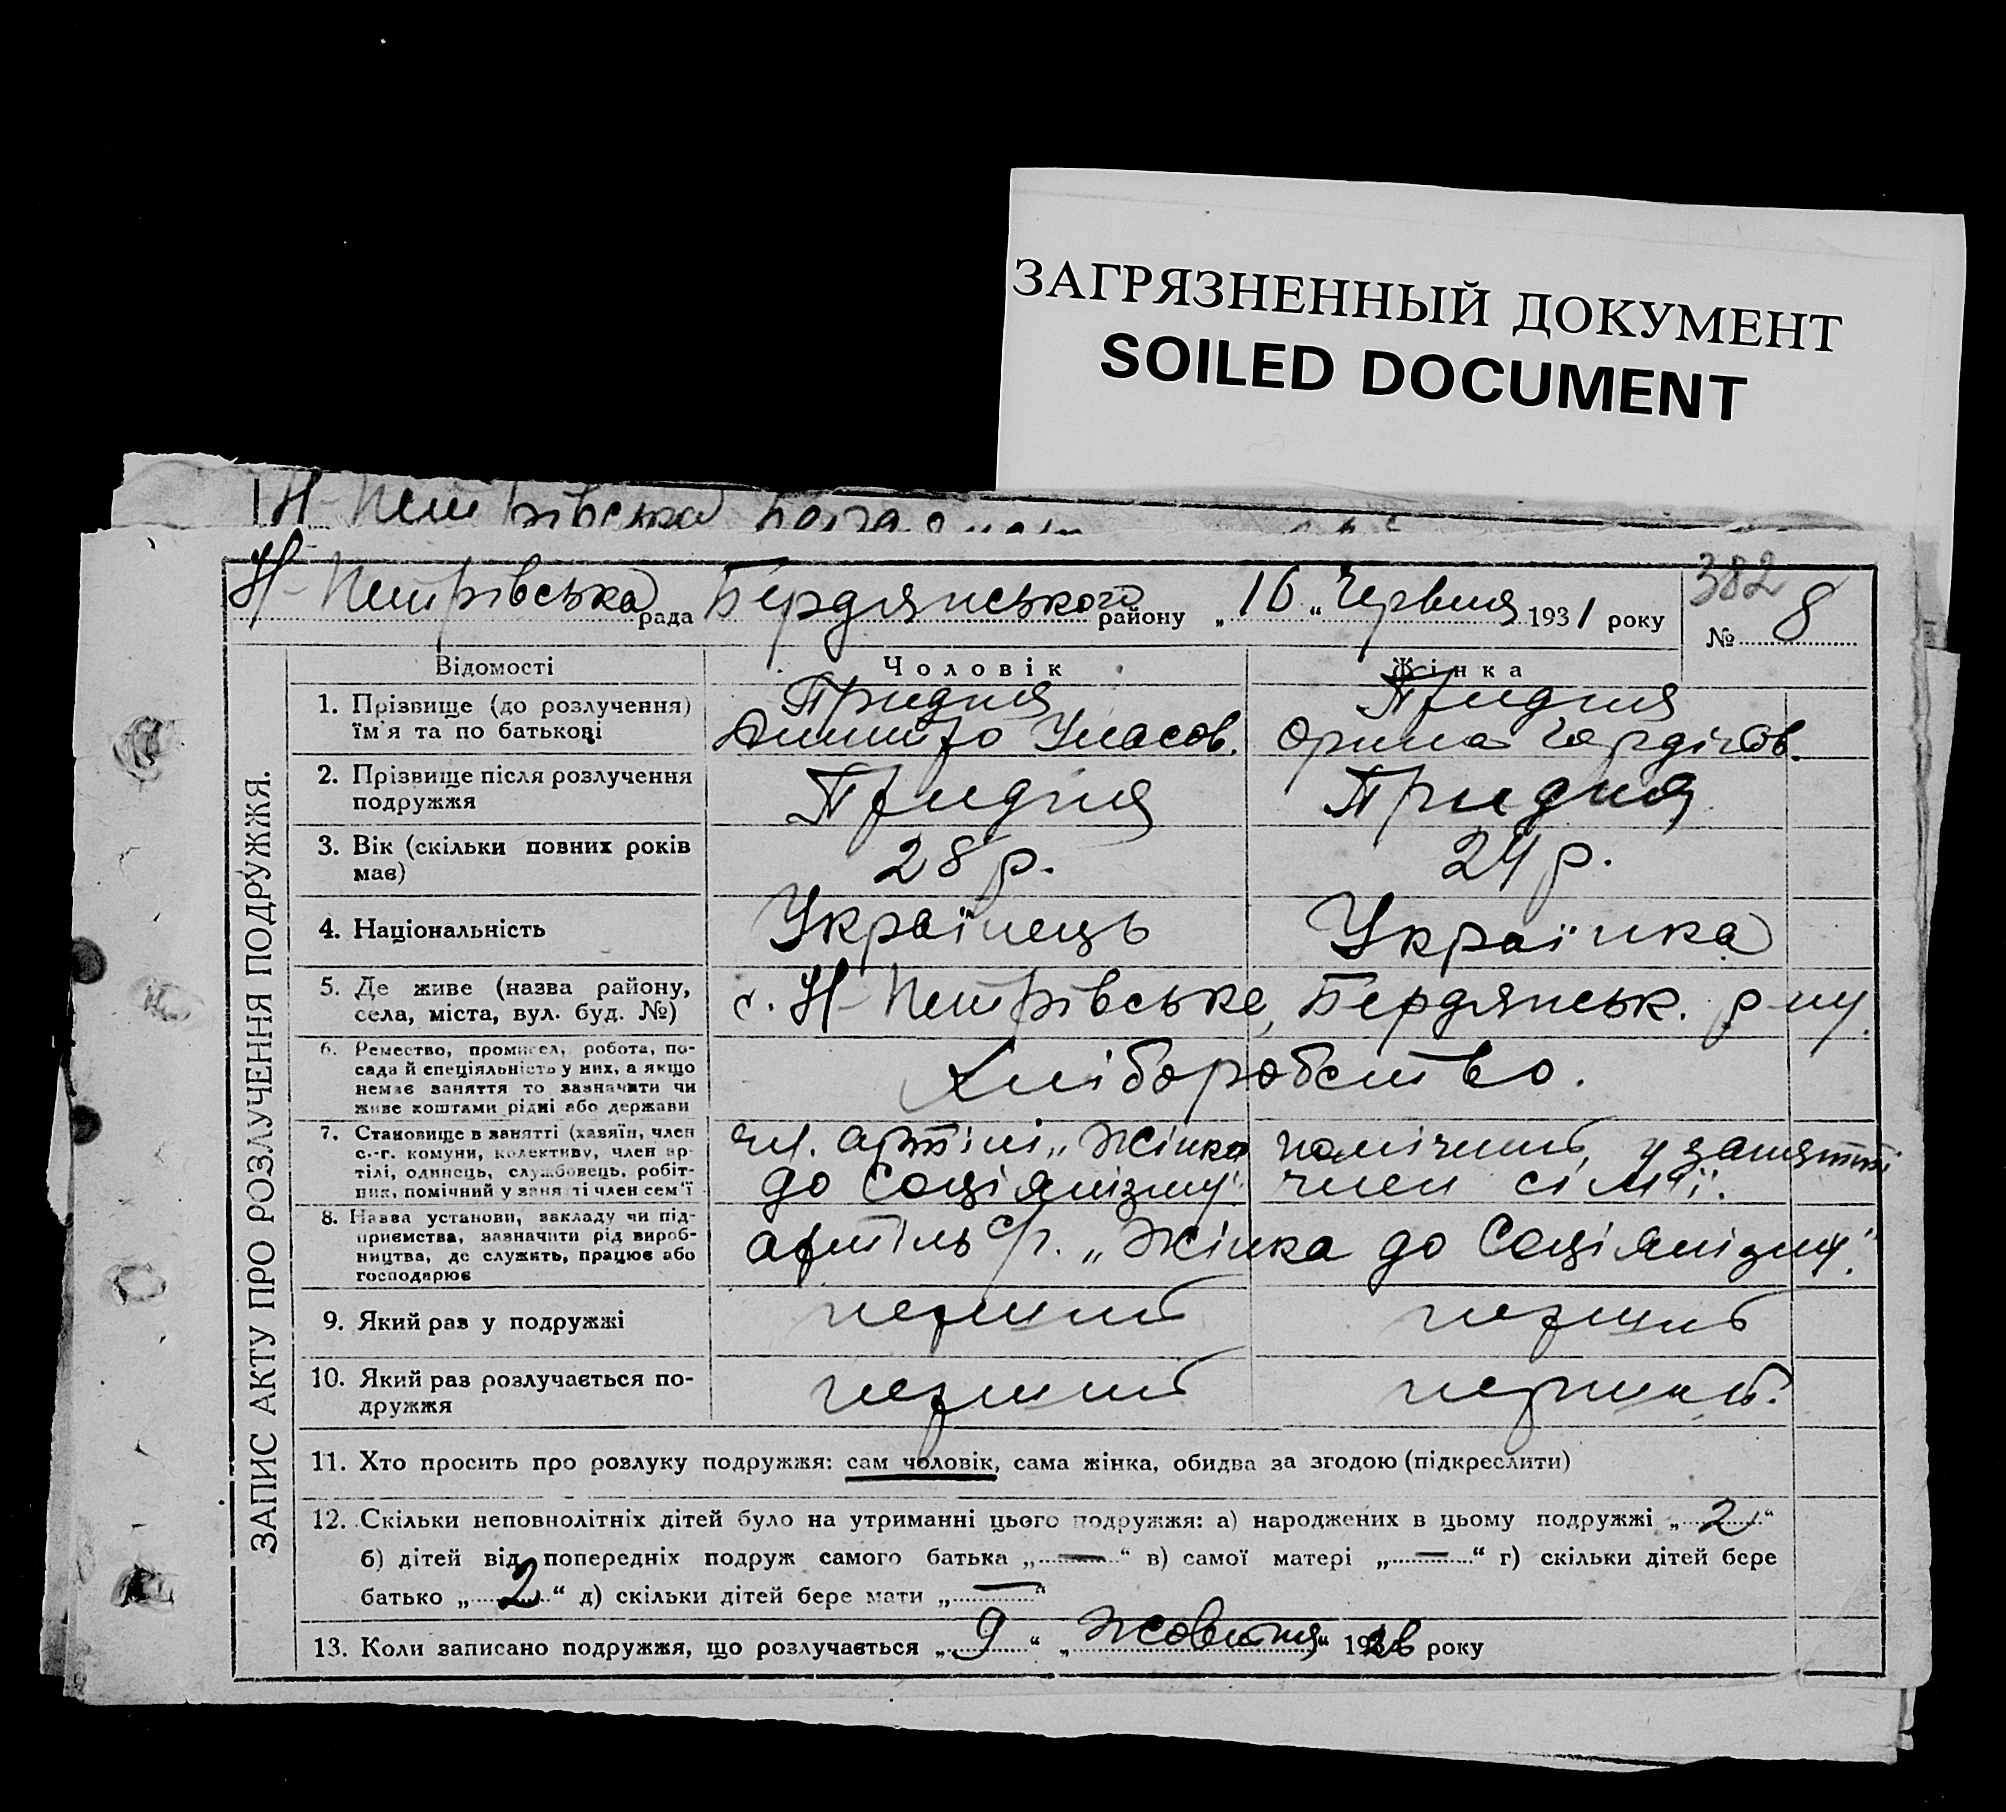 ЗАГРЯЗНЕННЫЙ ДОКУМЕНТ
SOILED DOCUMENT
Н-Петрівська
Н-Петрівська рада Бердянського району „16“ Червня 1931 року
382
№ 8
ЗАПИС АКТУ ПРО РОЗЛУЧЕННЯ ПОДРУЖЖЯ.
Відомості Чоловік Жінка
1. Прізвище (до розлучення) Придня Придня
їм'я та по батькові Дмитро Уласов. Орина
2. Прізвище після розлучення Придня Придня
подружжя
3. Вік (скільки повних років 28 р. 24 р.
має)
4. Національність Українець Українка
5. Де живе (назва району, с. Н-Петрівське, Бердянськ. р-ну.
села, міста, вул. буд. №)
6. Ремество, промисел, робота, по-
сада й спеціяльність у них, а якщо Хліборобство.
немає заняття то зазначити чи
живе коштами рідні або держави
7. Становище в занятті (хазяїн, член чл. артілі „Жінка помічний у занятті
с.-г. комуни, колективу, член ар-
тілі, одинець, службовець, робіт- до Соціялізму“ член сім'ї.
ник, помічний у занятті член сем'ї
8. Назва установи, закладу чи під-
приємства, зазначити рід вироб- артіль с/г. „Жінка до Соціялізму“.
ництва, де служить, працює або
господарює
9. Який раз у подружжі перший перший
10. Який раз розлучається по- перший перший.
дружжя
11. Хто просить про розлуку подружжя: сам чоловік, сама жінка, обидва за згодою (підкреслити)
12. Скільки неповнолітніх дітей було на утриманні цього подружжя: а) народжених в цьому подружжі „2“
б) дітей від попередніх подруж самого батька „—“ в) самої матері „—“ г) скільки дітей бере
батько „2“ д) скільки дітей бере мати „—“
13. Коли записано подружжя, що розлучається „9“ „Жовтня“ 1926 року